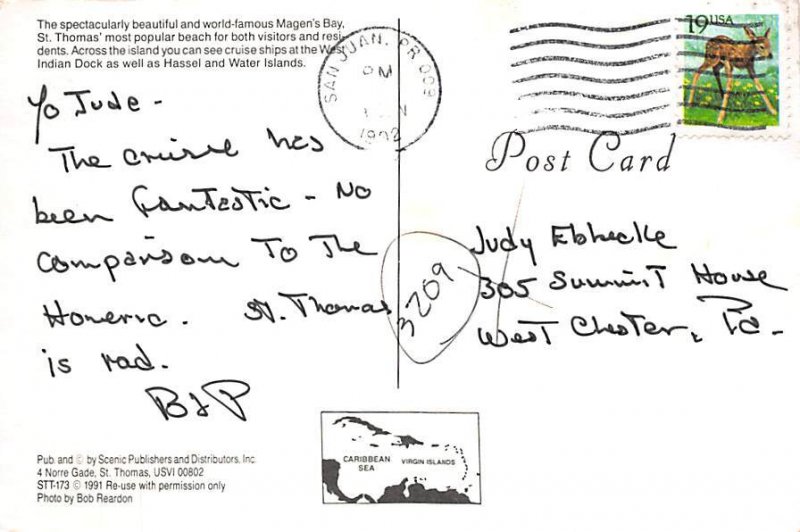 The spectacularly beautiful and world-famous Magen's Bay,
St. Thomas' most popular beach for both visitors and resi-
dents. Across the island you can see cruise ships at the West
Indian Dock as well as Hassel and Water Islands.
Yo Jude -
The cruise has
been fantastic - No
comparison to the
Homeric. St. Thomas
is rad.
B & P
Pub. and © by Scenic Publishers and Distributors, Inc.
4 Norre Gade, St. Thomas, USVI 00802
STT-173 © 1991 Re-use with permission only
Photo by Bob Reardon
SAN JUAN, PR 009
PM
1992
19USA
Post Card
3209
Judy Ebhecke
305 Summit House
West Chester, Pa.
CARIBBEAN
SEA
VIRGIN ISLANDS